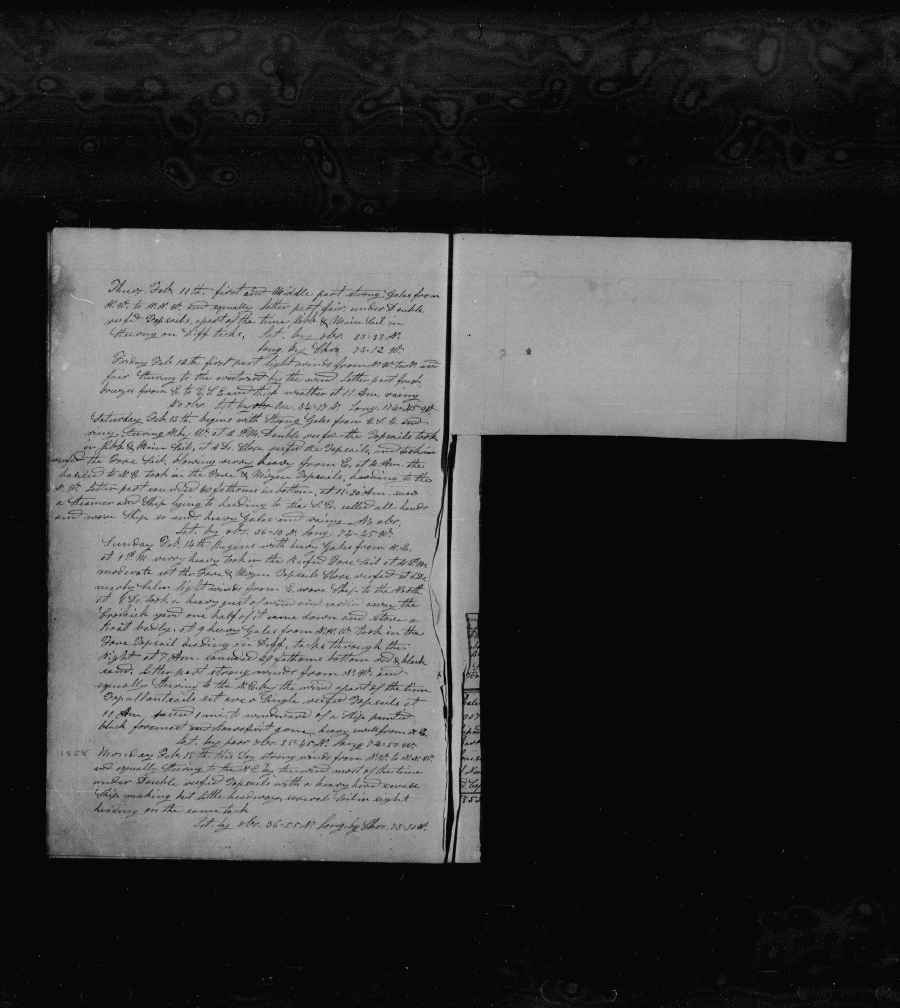 Thurs. Feb. 11th. first and Middle part strong Gales from
N.W. to N.N.W. and squally letter part fair. under Double
reefd Topsails, apart of the time Jibb & Main Sail in
Steering on Diff tacks, Lat. by obr. 33-33 N.
Long. by Chro. 73-12 W.
Friday Feb. 12th first part light winds from N.W. to N. and
fair Steering to the by the wind letter part fresh
breezes from E. to E.S.E. and thick weather at 11 Am. raing
No obr. Lat. by Acc. 34-17 N. Long.
Saturday Feb. 13th. begins with Strong Gales from E.S.E. and
raing Steering N. by W. at 2 P.M. Double reefd the Topsails took
in Jibb & Main Sail, at 4 Do. Close reefd the Topsails, and
reefed the Fore Sail. blowing verry heavy from E. at 4 Am. the
to N.E. took in the Fore & Mizen Topsails, heading to the
N.W. letter part sounded 60 fathoms no bottom, at 11-30 Am. saw
a Steamer and Ship lying to heading to the S.E. called all hands
and wore Ship so ends heavy Gales and raing No obr.
Lat. by obr. 36-10 N. Long. 74-45 W.
Sunday Feb. 14th. Begins with heavy Gales from N.E.
at 1 P.M. verry heavy took in the Reefed Fore Sail at 4 P.M.
moderate set the Fore & Mizen Topsails Close reefed at 6 Do.
nearly Calm light winds from E. wore Ship to the North
at 8 Do. took a heavy of wind and carried away the
yard one half of it came down and stove a
Boat badly. at 9 heavy Gales from N.N.W. took in the
Fore Topsail heading on Diff. tacks through the
Night at 7 Am. sounded 29 fathoms bottom red & black
sand. letter part strong winds from N.W. and
squally steering to the N.E. by the wind apart of the time
Topgallantsails set over Single reefed Topsails at
11 Am. passed 1 mi. to windward of a Ship painted
black foremast and bowsprit gone, heavy swell from N.E.
Lat. by poor obr. 35-45 N. Long 74-50 W.
1858 Monday Feb. 15th this Day strong winds from N.W. to N.N.W.
and squally Steering to the N.E. by the wind most of the time
under Double reefed Topsails with a heavy head swell
Ship making but little headway, several Sail in sight
heading on the same tack
Lat. by obr. 36-55 N. Long. by Chro. 73-30 W.